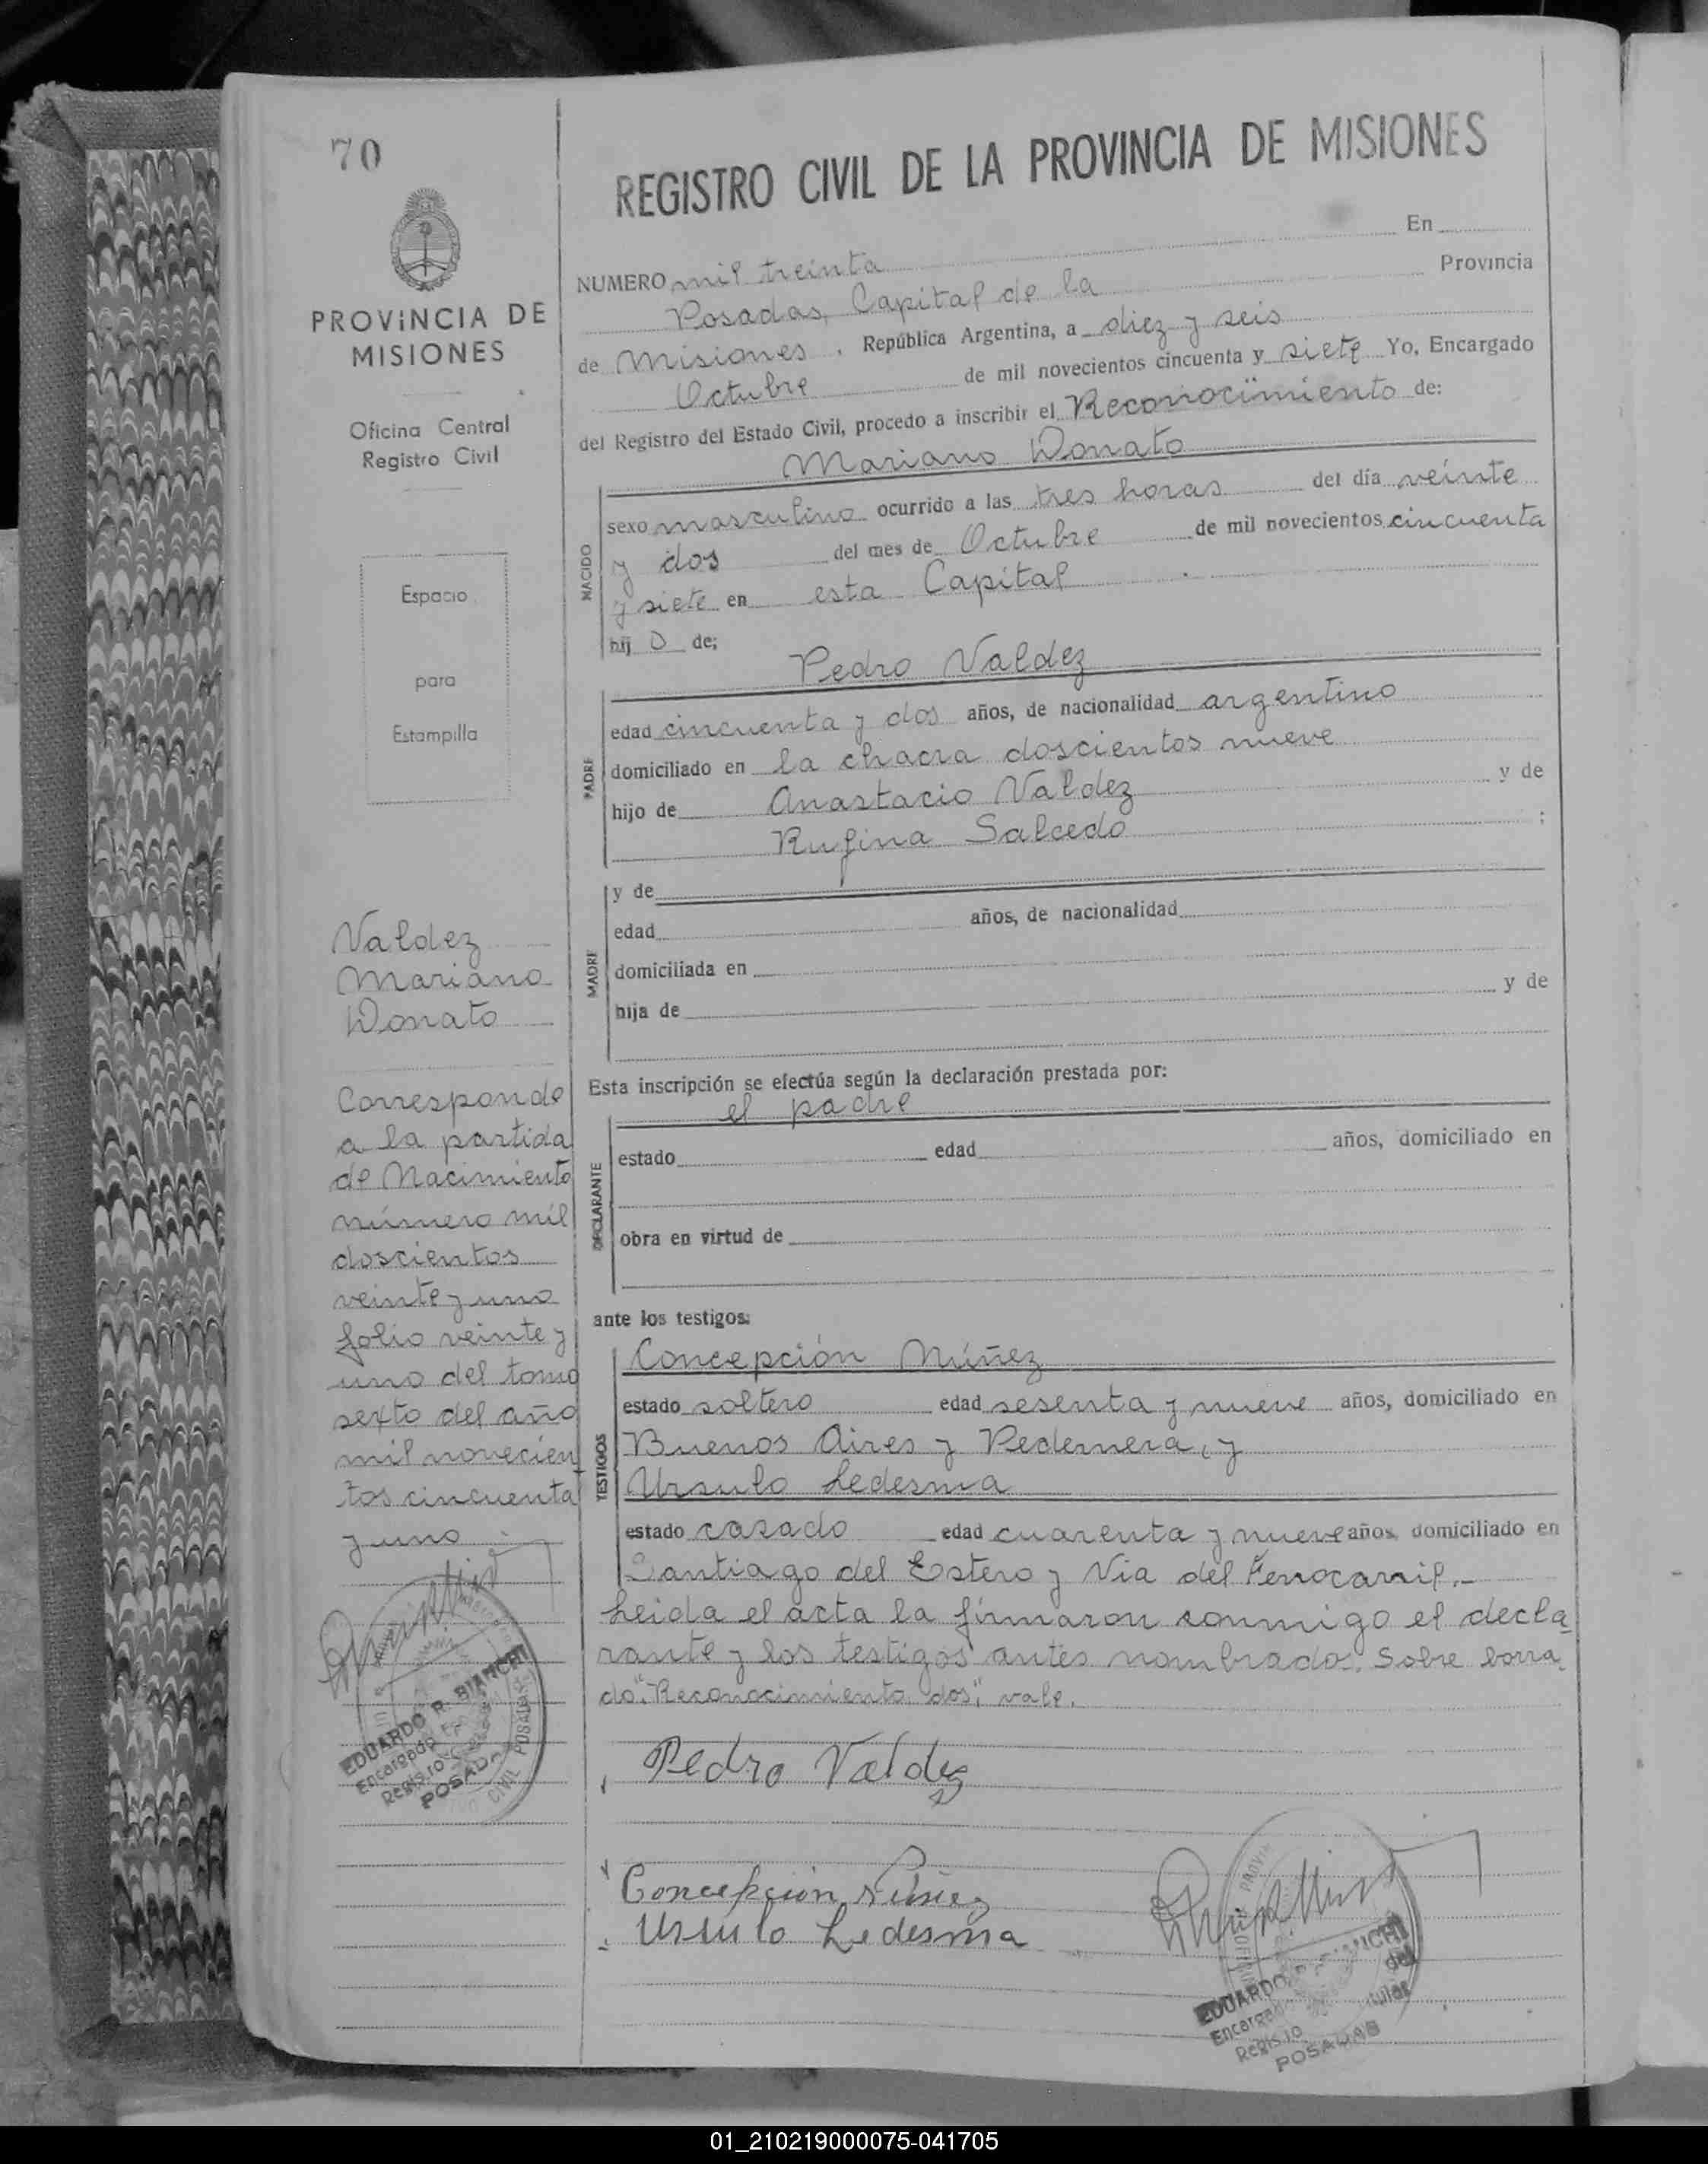 70
PROVINCIA DE
MISIONES
Oficina Central
Registro Civil
Espacio
para
Estampilla
Valdez
Mariano
Donato
Corresponde
a la partida
de Nacimiento
número mil
doscientos
veinte y uno
folio veinte y
uno del tomo
sexto del año
mil novecien
tos cincuenta
y uno
EDUARDO R. BIANCHI
Encargado
Registro
POSADAS
REGISTRO CIVIL DE LA PROVINCIA DE MISIONES
NUMERO mil treinta En
Posadas, Capital de la Provincia
de Misiones, República Argentina, a diez y seis
Octubre de mil novecientos cincuenta y siete Yo, Encargado
del Registro del Estado Civil, procedo a inscribir el Reconocimiento de:
Mariano Donato
NACIDO
sexo masculino ocurrido a las tres horas del día veinte
y dos del mes de Octubre de mil novecientos cincuenta
y siete en esta Capital
hij o de;
Pedro Valdez
PADRE
edad cincuenta y dos años, de nacionalidad argentino
domiciliado en la chacra doscientos nueve
hijo de Anastacio Valdez y de
Rufina Salcedo ;
MADRE
y de
edad años, de nacionalidad
domiciliada en
hija de y de
Esta inscripción se efectúa según la declaración prestada por:
el padre
DECLARANTE
estado edad años, domiciliado en
obra en virtud de
ante los testigos:
Concepción Núñez
TESTIGOS
estado soltero edad sesenta y nueve años, domiciliado en
Buenos Aires y Pedernera, y
Ursulo Ledesma
estado casado edad cuarenta y nueve años, domiciliado en
Santiago del Estero y Via del Ferrocarril.-
Leida el acta la firmaron conmigo el decla
rante y los testigos antes nombrados. Sobre borra
do "Reconocimiento dos", vale.
Pedro Valdez
Concepción Núñez
Ursulo Ledesma
EDUARDO BIANCHI
Encargado del
Registro
POSADAS
01_210219000075-041705